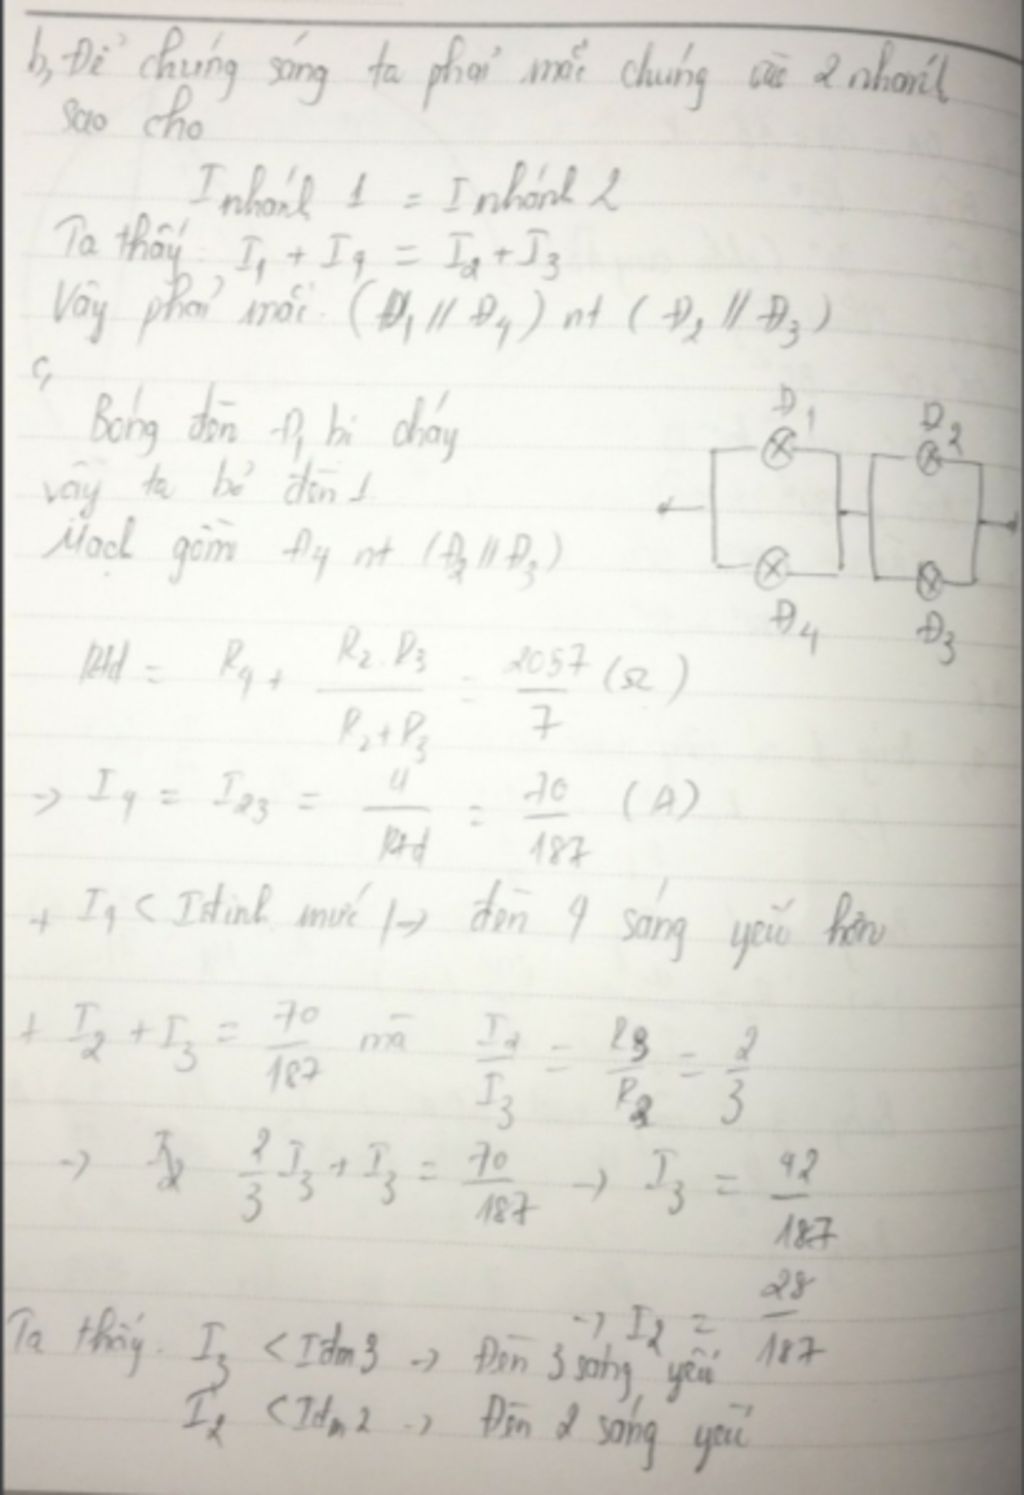 b, Để chúng sáng ta phải mắc chúng 2 nhánh
sao cho
I nhánh 1 = I nhánh 2
Ta thấy: I₁ + I₄ = I₂ + I₃
Vậy phải mắc: (Đ₁ // Đ₄) nt (Đ₂ // Đ₃)
c,
Bóng đèn Đ₁ bị cháy
vậy ta bỏ đèn 1.
Mạch gồm Đ₄ nt (Đ₂ // Đ₃)
Đ₁ Đ₂
Đ₄ Đ₃
Rtđ = R₄ + R₂.R₃/(R₂+R₃) = 2057/7 (Ω)
→ I₄ = I₂₃ = U/Rtđ = 70/187 (A)
+ I₄ < I định mức → đèn 4 sáng yếu hơn
+ I₂ + I₃ = 70/187 mà I₂/I₃ = R3/R2 = 2/3
→ 2/3 I₃ + I₃ = 70/187 → I₃ = 42/187
→ I₂ = 28/187
Ta thấy: I₃ < Iđm3 → Đèn 3 sáng yếu
I₂ < Iđm2 → Đèn 2 sáng yếu